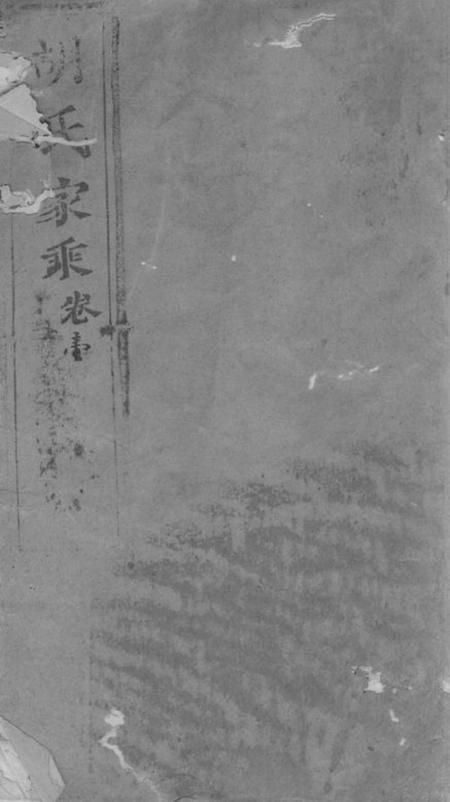 胡氏家乘卷壹